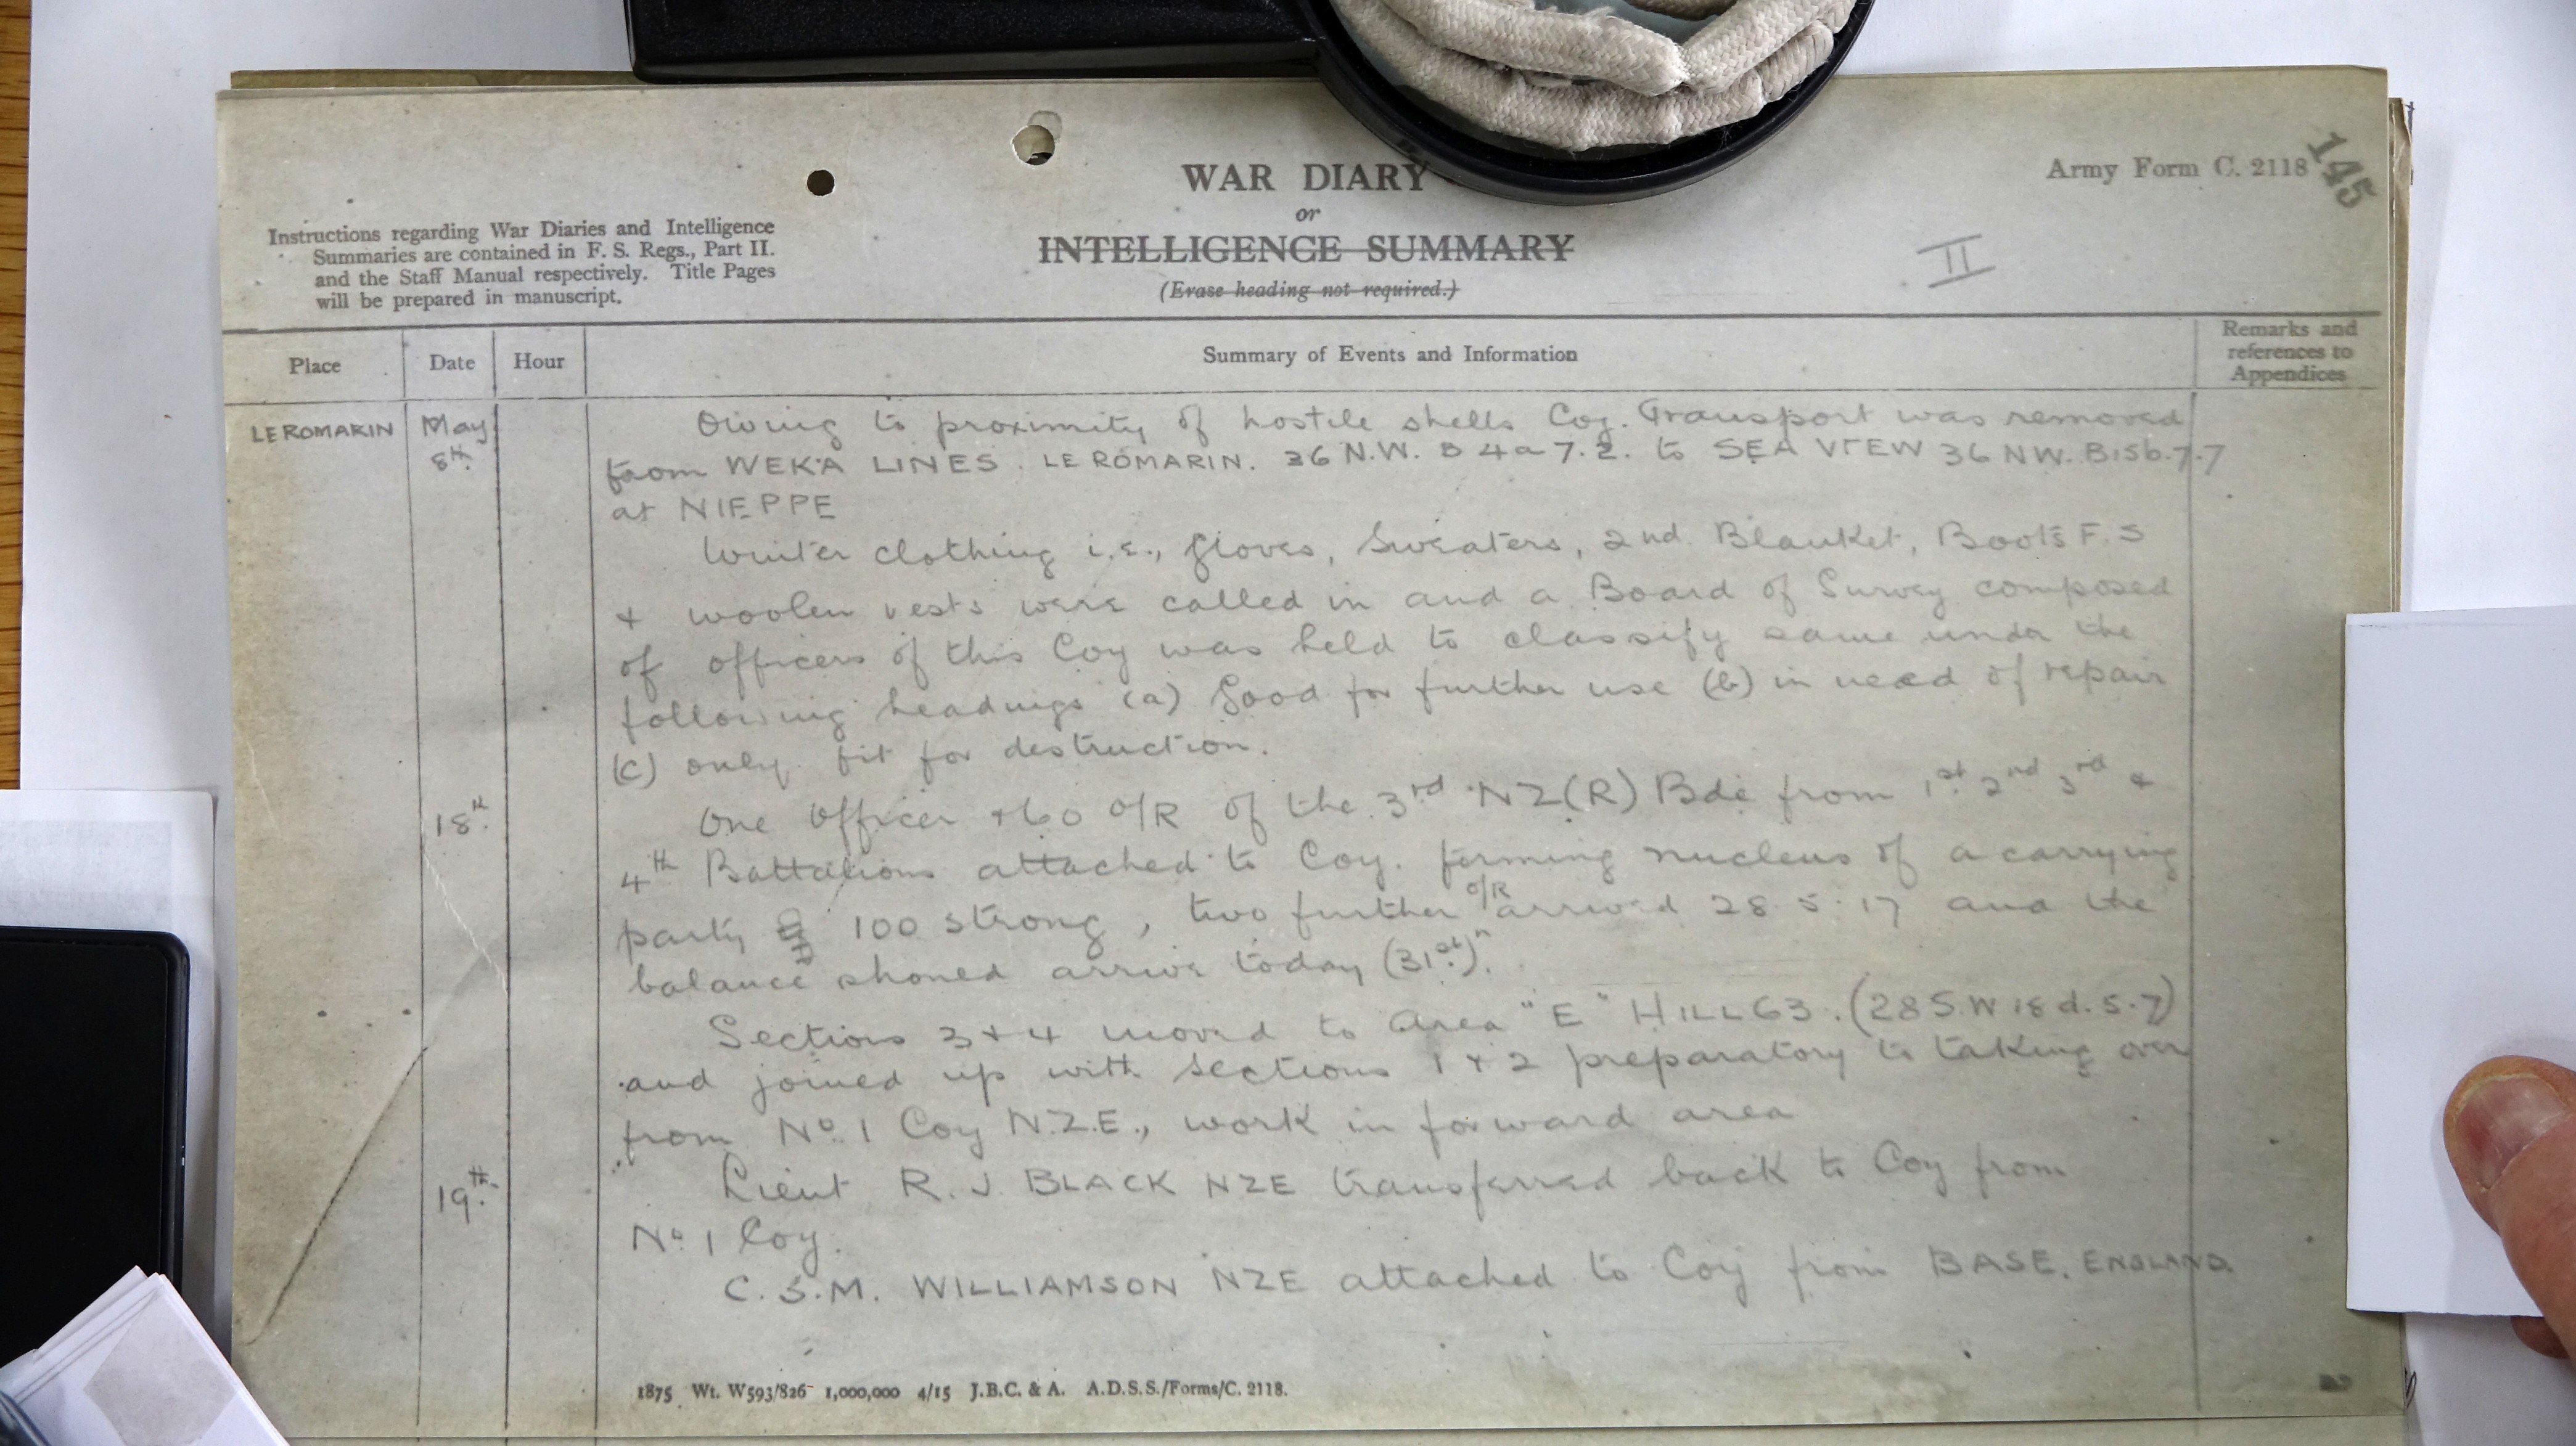 WAR DIARY
or
INTELLIGENCE SUMMARY
(Erase heading not required.)
Army Form C. 2118
145
II
Instructions regarding War Diaries and Intelligence
Summaries are contained in F. S. Regs., Part II.
and the Staff Manual respectively. Title Pages
will be prepared in manuscript.
Place Date Hour Summary of Events and Information Remarks and references to Appendices
LE ROMARIN May 8th. Owing to proximity of hostile shells Coy. Transport was removed
from WEKA LINES. LE ROMARIN. 36 N.W. B 4a 7.2. to SEA VIEW 36 NW. B15b.7.7
at NIEPPE
Winter clothing i.e., Gloves, Sweaters, 2nd. Blanket, Boots F.S
+ woolen vests were called in and a Board of Survey composed
of officers of this Coy was held to classify same under the
following headings (a) Good for further use (b) in need of repair
(c) only fit for destruction.
18th. One Officer +60 O/R of the 3rd NZ(R) Bde from 1st. 2nd 3rd &
4th Battalions attached to Coy. forming nucleus of a carrying
party 100 strong, two further O/R arrived 28.5.17 and the
balance shoned arrive today (31st.)
Sections 3+4 moved to Area "E" HILL 63. (28 S.W 18 d. 5.7)
and joined up with sections 1+2 preparatory to taking over
from No. 1 Coy N.Z.E., work in forward area
19th. Lieut R. J BLACK NZE transferred back to Coy from
No. 1 Coy.
C. S.M. WILLIAMSON NZE attached to Coy from BASE. ENGLAND.
1875 Wt. W593/826 1,000,000 4/15 J.B.C. & A. A.D.S.S./Forms/C. 2118.